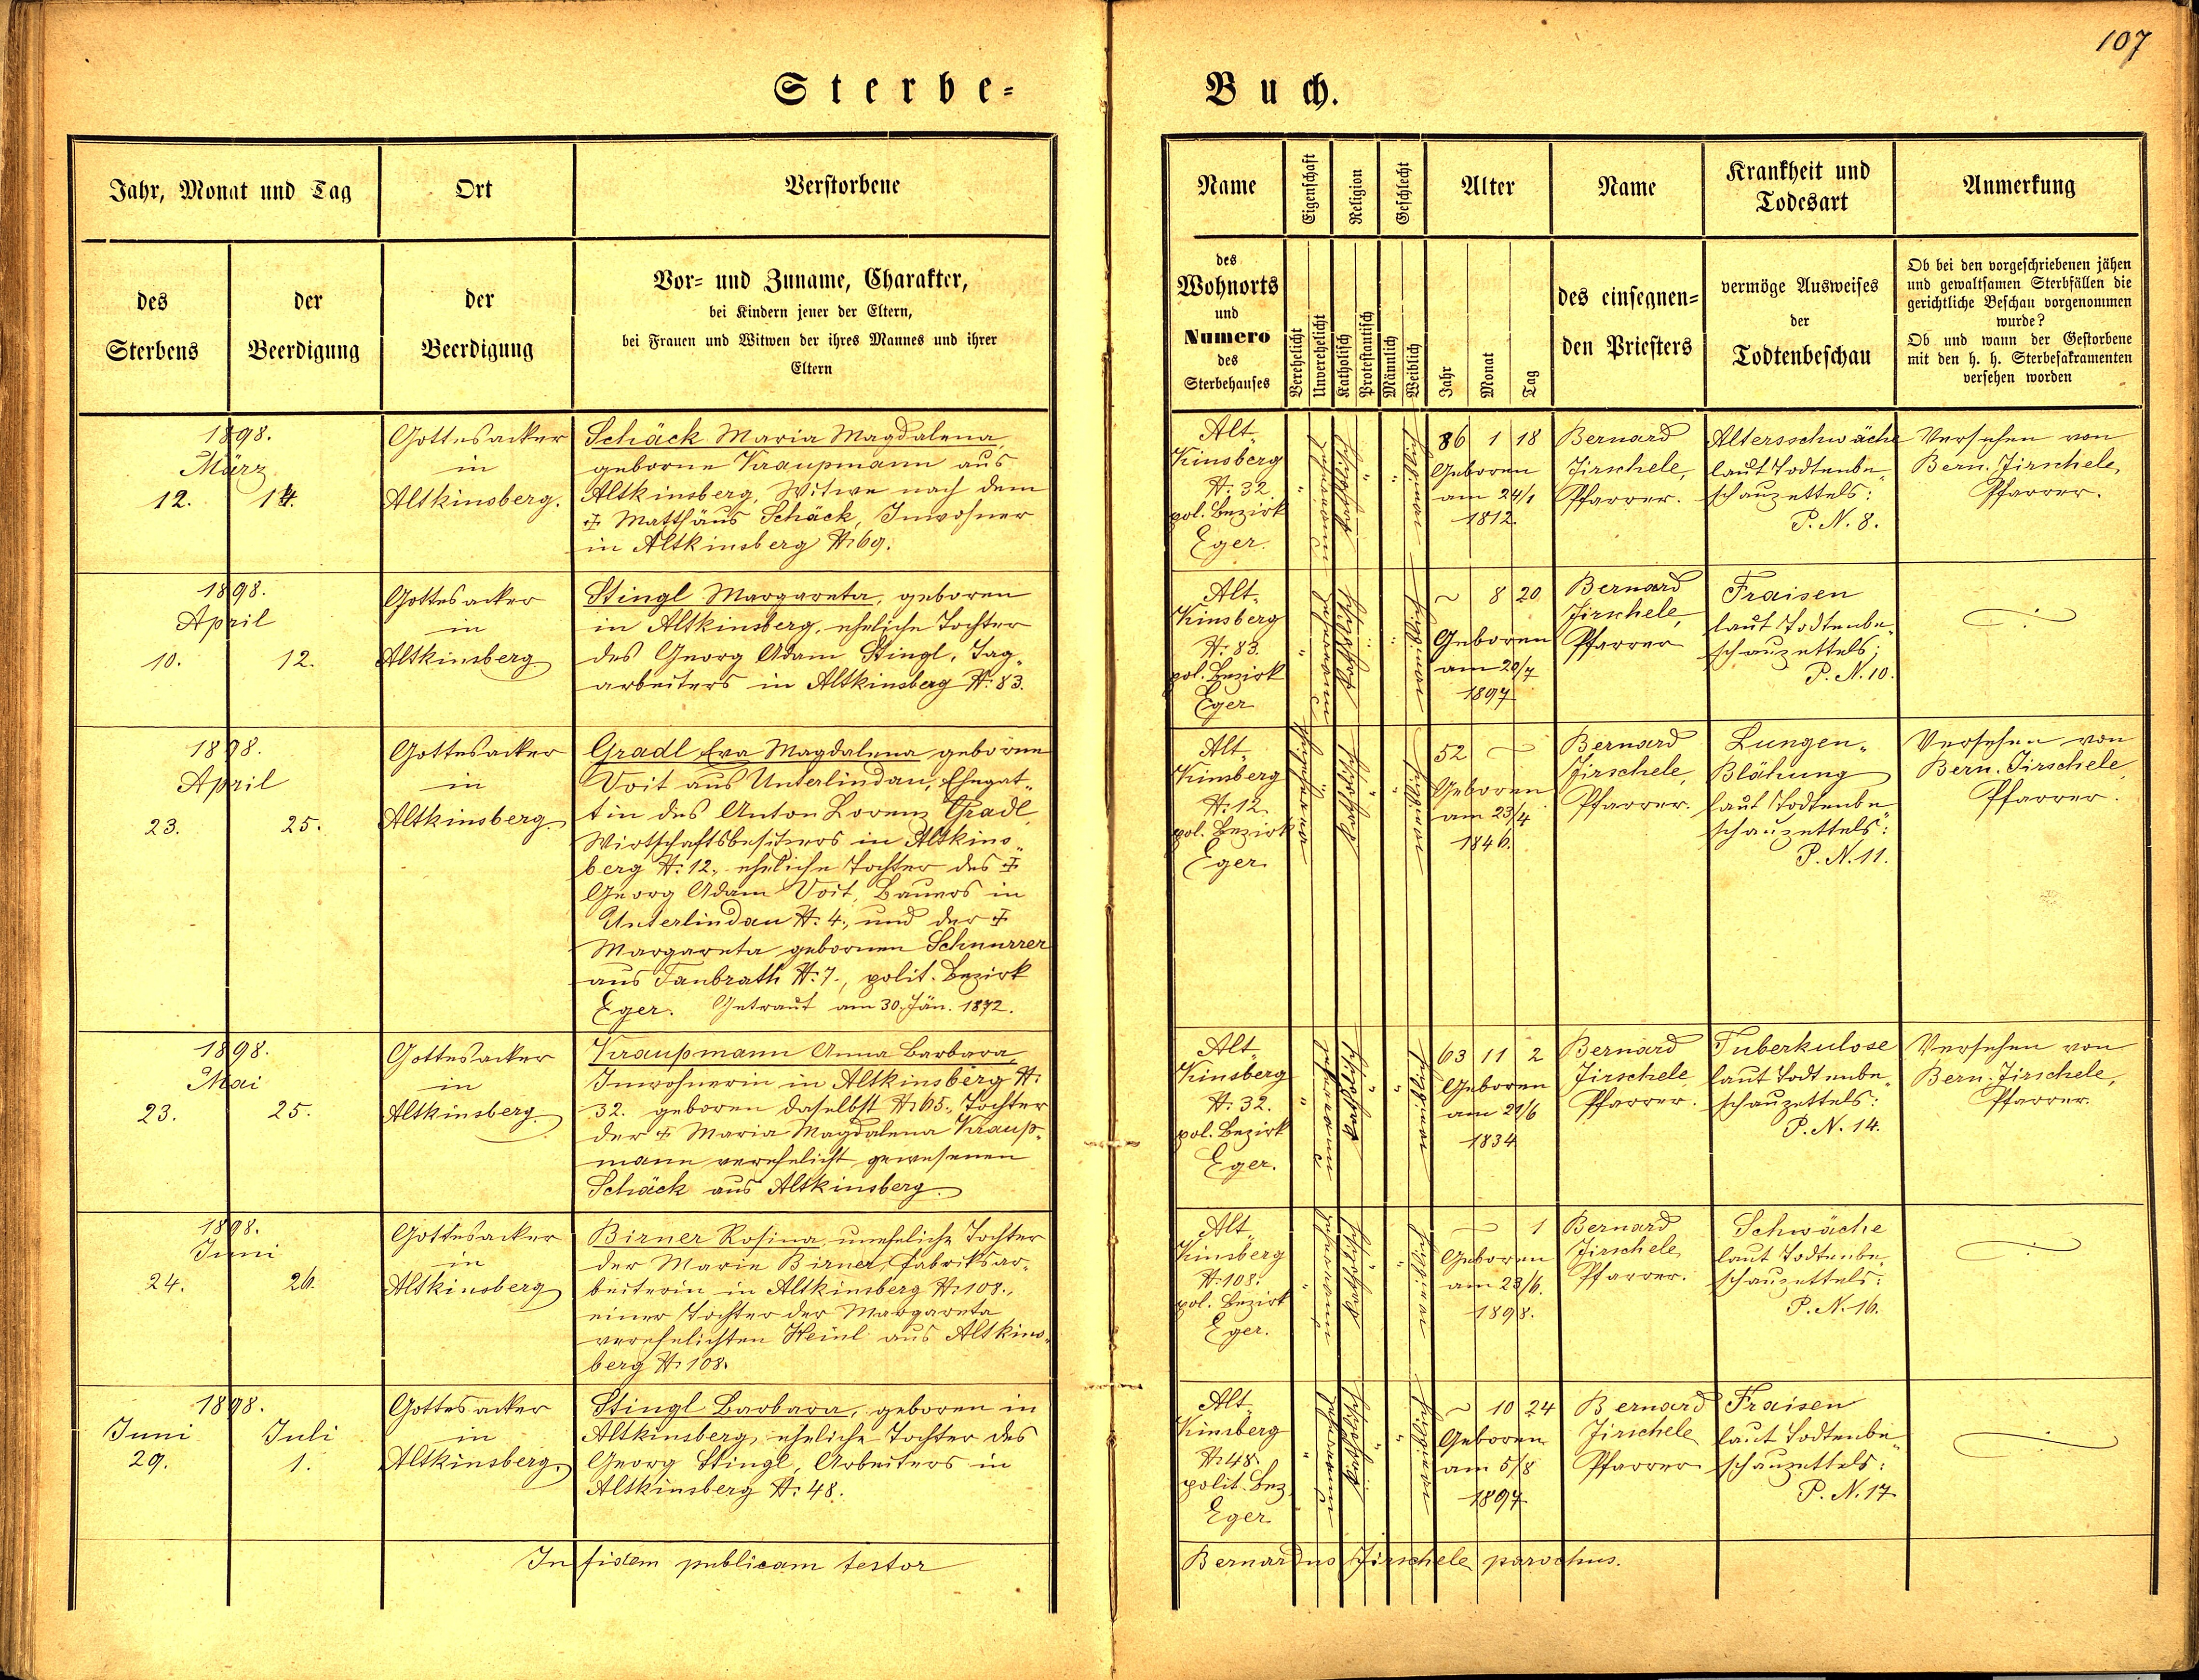 107
Sterbe-
Buch.
Jahr, Monat und Tag
Ort
Verstorbene
des
Sterbens
der
Beerdigung
der
Beerdigung
Vor- und Zuname, Charakter,
bei Kindern jener der Eltern,
bei Frauen und Witwen der ihres Mannes und ihrer
Eltern
Name
Eigenschaft
Religion
Geschlecht
Alter
Name
Krankheit und
Todesart
Anmerkung
des
Wohnorts
und
Numero
des
Sterbehauses
Verehelicht
Unverehelicht
Katholisch
Protestantisch
Männlich
Weiblich
Jahr
Monat
Tag
des einsegnen-
den Priesters
vermöge Ausweises
der
Todtenbeschau
Ob bei den vorgeschriebenen jähen
und gewaltsamen Sterbfällen die
gerichtliche Beschau vorgenommen
wurde?
Ob und wann der Gestorbene
mit den h. h. Sterbesakramenten
versehen worden
1898.
März
12. 14.
Gottesacker
in
Altkinsberg.
Schäck Maria Magdalena,
geborne Kraupmann aus
Altkinsberg, Witwe nach dem
✝ Matthäus Schäck, Inwohner
in Altkinsberg N: 69.
Alt-
Kinsberg
N: 32
pol. Bezirk
Eger.
katholisch
weiblich
86 1 18
Geboren
am 24/1
1812.
Bernard
Jirschele,
Pfarrer.
Altersschwäche
laut Todtenbe-
schauzettels:
P. N. 8.
Versehen von
Bern. Jirschele,
Pfarrer.
1898.
April
10. 12.
Gottesacker
in
Altkinsberg
Stingl Margareta, geboren
in Altkinsberg, eheliche Tochter
des Georg Adam Stingl, Tag-
arbeiters in Altkinsberg N: 83.
Alt-
Kinsberg
N: 83.
pol. Bezirk
Eger
katholisch
weiblich
~ 8 20
Geboren
am 20/7
1897
Bernard
Jirschele,
Pfarrer
Fraisen
laut Todtenbe-
schauzettels;
P. N. 10.
1898.
April
23. 25.
Gottesacker
in
Altkinsberg.
Gradl Eva Magdalena geborne
Voit aus Unterlindau, Ehegat-
tin des Anton Lorenz Gradl,
Wirtschaftsbesitzers in Altkins-
berg N: 12., eheliche Tochter des ✝
Georg Adam Voit, Bauers in
Unterlindau N: 4., und der ✝
Margareta gebornen Schnurrer
aus Taubrath N: 7., polit. Bezirk
Eger. Getraut am 30. Jän. 1872.
Alt-
Kinsberg
N: 12.
pol. Bezirk
Eger
katholisch
weiblich
52 ~
Geboren
am 23/4
1846.
Bernard
Jirschele,
Pfarrer.
Lungen-
Blähung
laut Todtenbe-
schauzettels:
P. N. 11.
Versehen von
Bern. Jirschele,
Pfarrer.
1898.
Mai
23. 25.
Gottesacker
in
Altkinsberg.
Kraupmann Anna Barbara,
Inwohnerin in Altkinsberg N:
32. geboren daselbst N: 65., Tochter
der ✝ Maria Magdalena Kraup-
mann verehelicht gewesenen
Schäck aus Altkinsberg.
Alt-
Kinsberg
N: 32.
pol. Bezirk
Eger.
katholisch
weiblich
63 11 2
Geboren
am 21/6
1834
Bernard
Jirschele,
Pfarrer.
Tuberkulose
laut Todtenbe-
schauzettels:
P. N. 14.
Versehen von
Bern. Jirschele,
Pfarrer.
1898.
Juni
24. 26.
Gottesacker
in
Altkinsberg
Birner Rosina, uneheliche Tochter
der Marie Birner, Fabriksar-
beiterin in Altkinsberg N: 108.,
einer Tochter der Margareta
verehelichten Heinl aus Altkins-
berg N: 108.
Alt-
Kinsberg
N: 108.
pol. Bezirk
Eger.
katholisch
weiblich
~ 1
Geboren
am 23/6.
1898.
Bernard
Jirschele,
Pfarrer.
Schwäche
laut Todtenbe-
schauzettels:
P. N. 16.
1898.
Juni Juli
29. 1.
Gottesacker
in
Altkinsberg.
Stingl Barbara, geboren in
Altkinsberg, eheliche Tochter des
Georg Stingl, Arbeiters in
Altkinsberg N: 48.
Alt-
Kinsberg
N: 48.
polit. Bez.
Eger
katholisch
weiblich
~ 10 24
Geboren
am 5/8
1897
Bernard
Jirschele
Pfarrer
Fraisen
laut Todtenbe-
schauzettels:
P. N. 17
In fidem publicam testor
Bernardus Jirschele parochus.